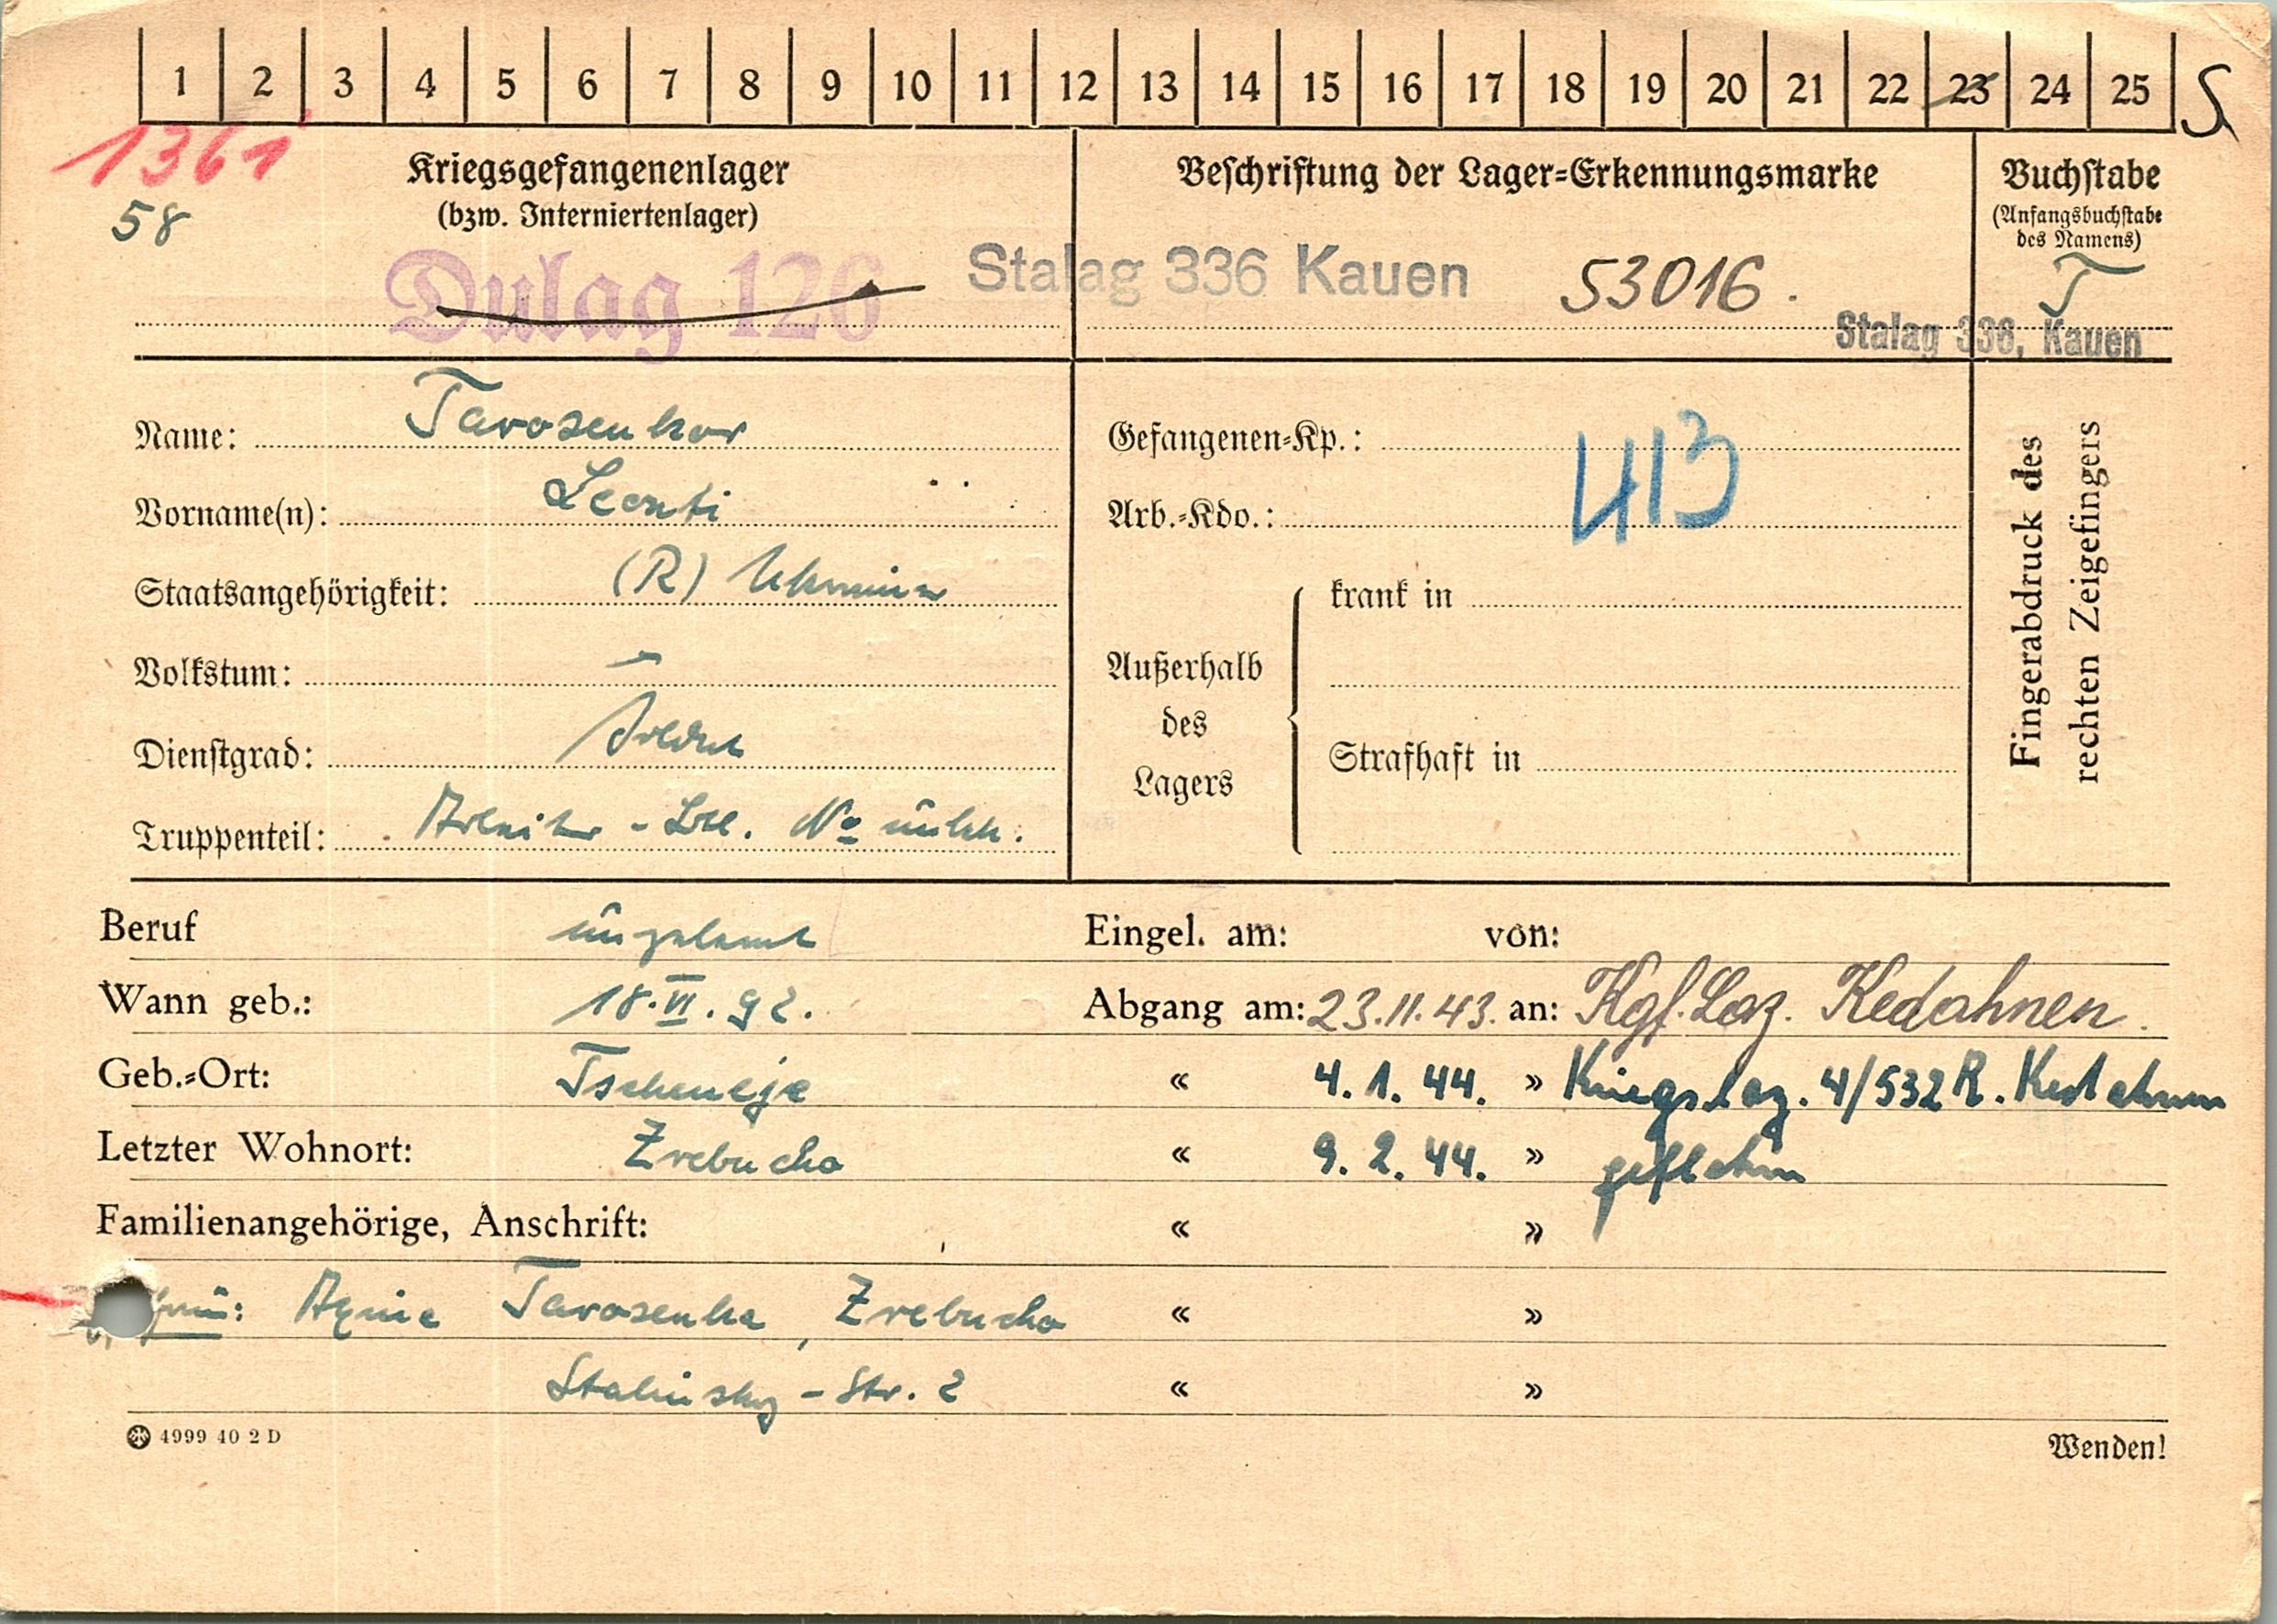 1 2 3 4 5 6 7 8 9 10 11 12 13 14 15 16 17 18 19 20 21 22 23 24 25
1361
58
Kriegsgefangenenlager
(bzw. Interniertenlager)
Dulag 126
Beschriftung der Lager=Erkennungsmarke
Stalag 336 Kauen 53016.
Buchstabe
(Anfangsbuchstabe
des Namens)
T
Stalag 336, Kauen
Name: Tarosenkor
Vorname(n): Leonti
Staatsangehörigkeit: (R) Ukrainer
Volkstum: —
Dienstgrad: Soldat
Truppenteil: Arbeiter - Btl. No unbek.
Gefangenen=Kp.:
413
Arb.=Kdo.:
Außerhalb
des
Lagers
krank in
Strafhaft in
Fingerabdruck des
rechten Zeigefingers
Beruf ungelernt
Wann geb.: 18.VI.92.
Geb.=Ort: Tscheneje
Letzter Wohnort: Zrebucha
Familienangehörige, Anschrift:
Frau: Aqnie Tarosenka, Zrebucha
Stalinsky - Str. 2
Eingel. am: von:
Abgang am: 23.11.43. an: Kgf. Laz. Kedahnen.
« 4.1.44. » Kriegslaz. 4/532 R. Kedahnen
« 9.2.44. » geflohen
« »
« »
« »
4999 40 2 D
Wenden!